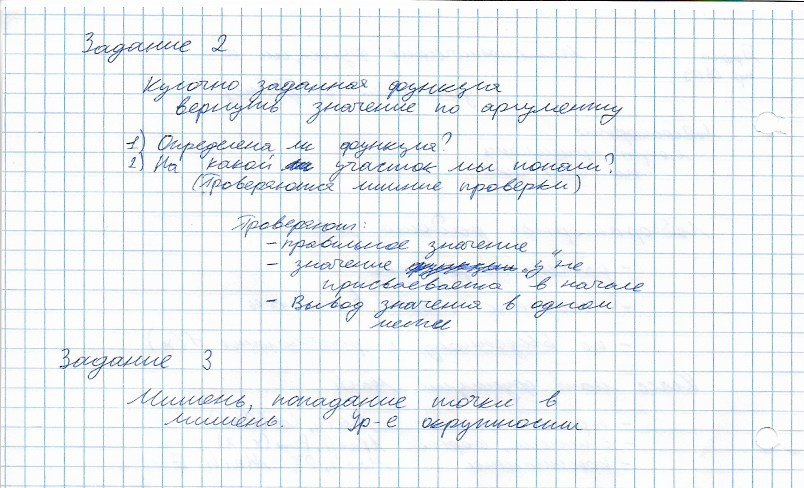 Задание 2
Кусочно заданная функция
вернуть значение по аргументу
1) Определена ли функция?
2) На какой участок мы попали?
(Проверяются лишние проверки)
Проверяют:
- правильное значение
- значение "y" не
присваевается в начале
- Вывод значения в одном
месте
Задание 3
Мишень, попадание точки в
мишень. Ур-е окружности